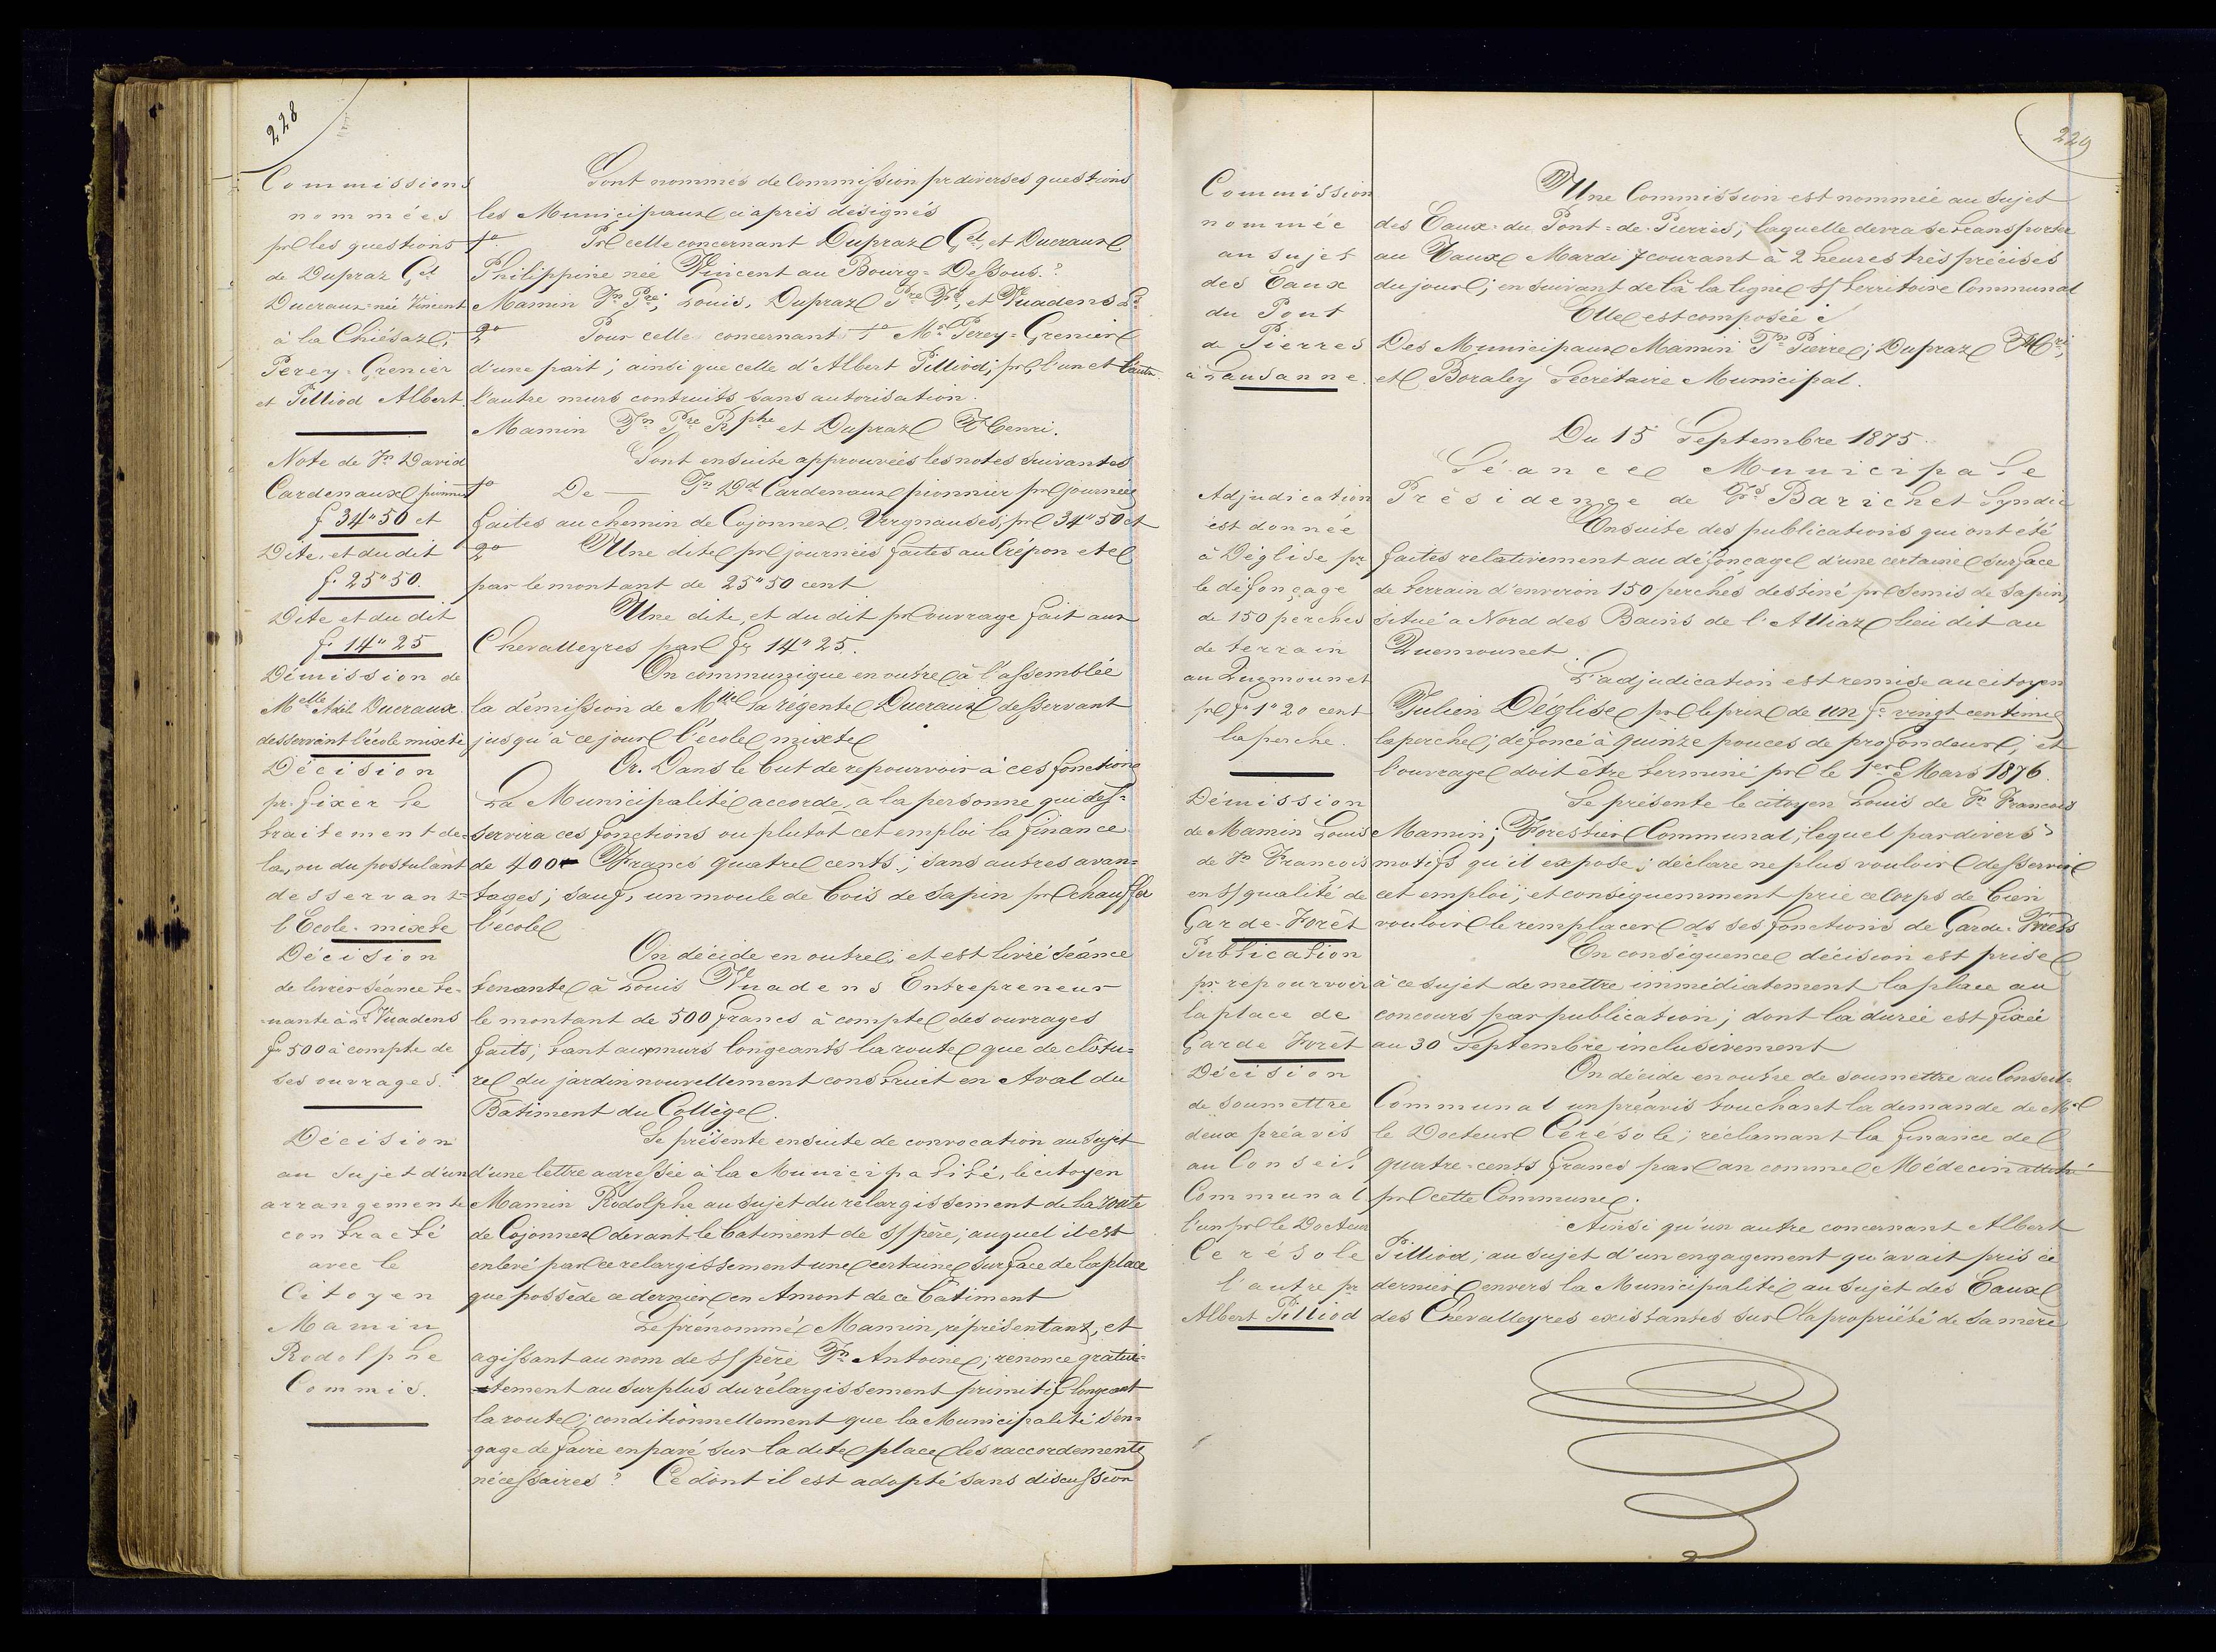 228
Commissions
nommées
pr les questions
de Dupraz Gel
Ducraux née Vincent
à la Chiésaz,
Perey-Grenier
et Pilliod Albert.
Note de Jn David
Cardenaux pionnier
f 34"50 et
Dite, et du dit
f. 25"50.
Dite et du dit
f. 14"25
Démission de
Melle Adèle Ducraux
desservant l'école mixte
Décision
pr. fixer le
traitement de
la, ou du postulant
desservant
l'Ecole-mixte
Décision
de livrer séance te-
nante à Ls Vuadens
fr 500 à compte de
ses ouvrages.
Décision
au sujet d'un
arrangement
contracté
avec le
Citoyen
Mamin
Rodolphe
Commis.
Sont nommés de Commission pr diverses questions
les Municipaux ci après désignés
1o Pr celle concernant Dupraz Gel, et Ducraux
Philippine née Vincent au Bourg-Dessous.?
Mamin Jn Pre; Louis, Dupraz Pre Fs, et Vuadens Ls
2o Pour celle concernant 1o Mr Perey-Grenier
d'une part; ainsi que celle d'Albert Pilliod; pr l'un et l'autre
l'autre murs contruits sans autorisation.
Mamin Jn Pre Rphe et Dupraz F Henri.
Sont ensuite approuvées les notes suivantes
1o De — Jn Dd Cardenaux pionnier pr journées
faites au chemin de Cojonnex, Vergnauses; pr 34"50 ct
2o Une dite pr journées faites au Crépon et
par le montant de 25"50 cent
Une dite, et du dit pr ouvrage fait aux
Chevalleyres par fr 14"25.
On communique en outre à l'assemblée
la démission de Mlle la régente Ducraux desservant
jusqu'à ce jour l'école mixte
Or. Dans le but de repourvoir à ces fonctions
La Municipalité accorde, à la personne qui des-
servira ces fonctions ou plutôt cet emploi la finance
de 400 Francs quatre cents; sans autres avan-
tages; sauf, un moule de bois de sapin pr chauffer
l'école
On décide en outre; et est livré séance
tenante à Louis Vuadens Entrepreneur
le montant de 500 francs à compte des ouvrages
faits; tant aux murs longeants la route que de clôtu-
re du jardin nouvellement construit en Aval du
Bâtiment du Collège.
Se présente ensuite de convocation au sujet
d'une lettre adressée à la Municipalité, le citoyen
Mamin Rodolphe au sujet du rélargissement de la route
de Cojonnex devant le batiment de s/ père; auquel il est
enlevé par ce relargissement une certaine surface de la place
que possède ce dernier en Amont de ce bâtiment
Le prénommé Mamin, représentant, et
agissant au nom de s/ père Jn Antoine; renonce gratui-
tement au surplus du rélargissement primitif longeant
la route; conditionnellement que la Municipalité s'en-
gage de faire en pavé sur la dite place les raccordements
nécessaires? Ce dont il est adopté sans discussion
229
Commission
nommée
au sujet
des Eaux
du Pont
de Pierres
à Lausanne.
Adjudication
est donnée
à Déglise pr
le défonçage
de 150 perches
de terrain
au Quemounet
pr fr 1"20 cent
la perche.
Démission
de Mamin Louis
de Jn François
en s/ qualité de
Garde-Forêt
Publication
pr repourvoir
la place de
Garde Forêt
Décision
de soumettre
deux préavis
au Conseil
Communal
l'un pr le Docteur
Cérésole
l'autre pr
Albert Pilliod
Une Commission est nommée au sujet
des Eaux-du Pont-de-Pierres; laquelle devra se transporter
au Vaux Mardi 7 courant à 2 heures très précises
du jour; en suivant de là la ligne s/ territoire Communal
Elle est composée
Des Municipaux Mamin Jn Pierre; Dupraz F Hri,
et Boraley Secrétaire Municipal.
Du 15 Septembre 1875.
Séance Municipale
Présidence de Fs Barichet Syndic
Ensuite des publications qui ont été
faites relativement au défonçage d'une certaine surface
de terrain d'environ 150 perches destiné pr semis de sapin,
situé à Nord des Bains de l'Alliaz lieu dit au
Quemounet.
L'adjudication est remise au citoyen
Julien Déglise pr le prix de un fc vingt centimes
la perche; défoncé à quinze pouces de profondeur; et
l'ouvrage doit être terminé pr le 1er Mars 1876.
Se présente le citoyen Louis de Jn Francois
Mamin; Forestier Communal; lequel par divers
motifs qu'il expose; déclare ne plus vouloir desservir
cet emploi; et conséquemment prie ce Corps de bien
vouloir le remplacer ds ses fonctions de Garde-Forêts
En conséquence décision est prise
à ce sujet de mettre immédiatement la place au
concours par publication; dont la durée est fixée
au 30 Septembre inclusivement
On décide en outre de soumettre au Conseil-
Communal un préavis touchant la demande de Mr
le Docteur Cérésole; réclamant la finance de
quatre-cents francs par an comme Médecin attitré
pr cette Commune.
Ainsi qu'un autre concernant Albert
Pilliod; au sujet d'un engagement qu'avait pris ce
dernier envers la Municipalité au sujet des Eaux
des Chevalleyres existantes sur la propriété de sa mère